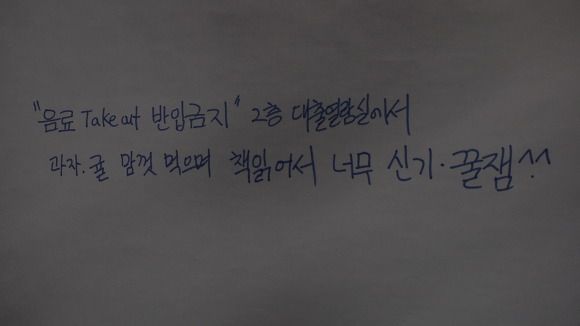 "음료 Take out 반입금지" 2층 대출열람실에서
과자.귤 맘껏 먹으며 책읽어서 너무 신기·꿀잼^^